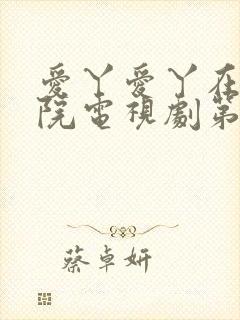 愛丫愛丫在
院電視劇第
蔡卓妍